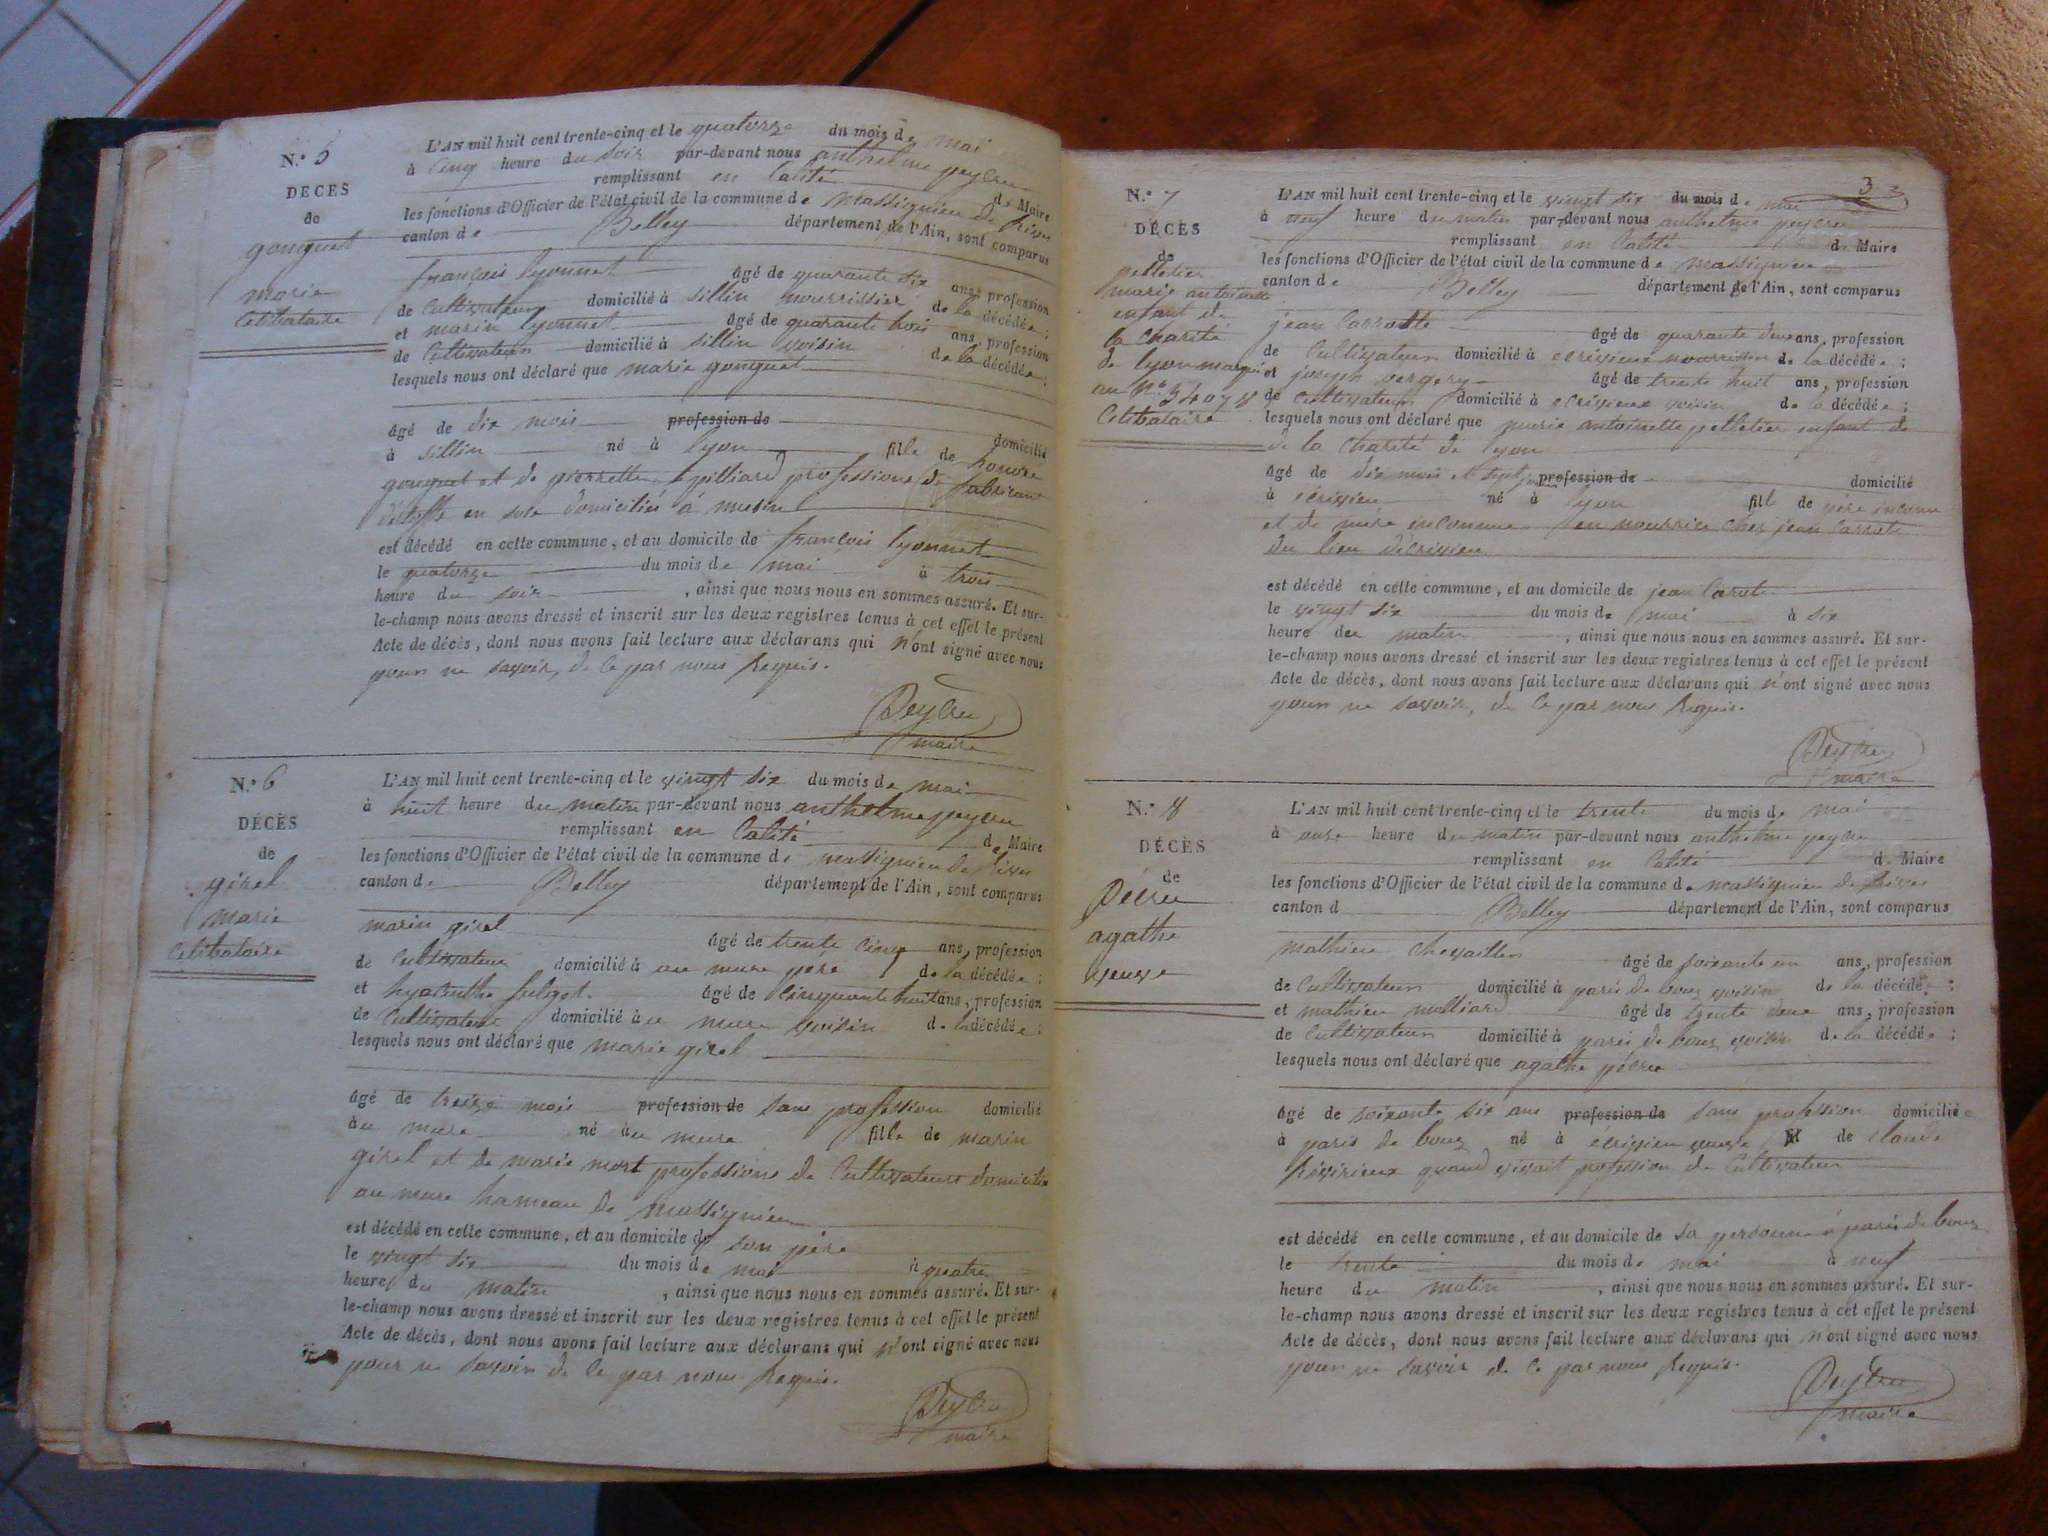 N.° 5
DÉCÈS
de
gonguet
marie
célibataire
L'AN mil huit cent trente-cinq et le quatorze du mois de mai
à cinq heure du soir par-devant nous anthelme peycru
remplissant en calité de Maire
les fonctions d'Officier de l'état civil de la commune de massignieu de rives
canton de Belley département de l'Ain, sont comparus
françois lyonnet âgé de quarante six ans, profession
de cultivateur domicilié à sillin nourrissier de la décédée ;
et marin lyonnet âgé de quarante trois ans, profession
de cultivateur domicilié à sillin voisin de la décédée ;
lesquels nous ont déclaré que marie gonguet
âgé de dix mois profession de domicilié
à sillin né à lyon fille de honoré
gonguet et de pierrette professions de fabricant
d'étoffe en soie domiciliés à
est décédé en cette commune, et au domicile de françois lyonnet
le quatorze du mois de mai à trois
heure du soir , ainsi que nous nous en sommes assuré. Et sur-
le-champ nous avons dressé et inscrit sur les deux registres tenus à cet effet le présent
Acte de décès, dont nous avons fait lecture aux déclarans qui n'ont signé avec nous
pour ne savoir, de ce par nous requis.
Peycru
maire
N.° 6
DÉCÈS
de
girel
marie
célibataire
L'AN mil huit cent trente-cinq et le vingt six du mois de mai
à huit heure du matin par-devant nous anthelme peycru
remplissant en calité de Maire
les fonctions d'Officier de l'état civil de la commune de massignieu de rives
canton de Belley département de l'Ain, sont comparus
marin girel âgé de trente cinq ans, profession
de cultivateur domicilié à au mure père de la décédée ;
et hyacinthe âgé de cinquante huit ans, profession
de cultivateur domicilié à au mure voisin de la décédée ;
lesquels nous ont déclaré que marie girel
âgé de treize mois profession de sans profession domicilié
au mure né au mure fille de marin
girel et de marie mort professions de cultivateurs domicilié
au mure hameau de massignieu
est décédé en cette commune, et au domicile de son père
le vingt six du mois de mai à quatre
heure du matin , ainsi que nous nous en sommes assuré. Et sur-
le-champ nous avons dressé et inscrit sur les deux registres tenus à cet effet le présent
Acte de décès, dont nous avons fait lecture aux déclarans qui n'ont signé avec nous
pour ne savoir de ce par nous requis.
Peycru
maire
3
N.° 7
DÉCÈS
de
pelletier
marie antoinette
enfant de
la charité
de lyon marqué
au N.°
célibataire
L'AN mil huit cent trente-cinq et le vingt six du mois de mai
à neuf heure du matin par-devant nous anthelme peycru
remplissant en calité de Maire
les fonctions d'Officier de l'état civil de la commune de massignieu
canton de Belley département de l'Ain, sont comparus
jean carrotte âgé de quarante deux ans, profession
de cultivateur domicilié à écrivieu nourrissier de la décédée ;
et joseph vergery âgé de trente huit ans, profession
de cultivateur domicilié à écrivieux voisin de la décédée ;
lesquels nous ont déclaré que marie antoinette pelletier enfant de
de la charité de lyon
âgé de dix mois et sept jours profession de domicilié
à écrivieu né à lyon fille de père inconnu
et de mère inconnue en nourrice chez jean carrote
du lieu d'écrivieu
est décédé en cette commune, et au domicile de jean carrote
le vingt six du mois de mai à six
heure du matin , ainsi que nous nous en sommes assuré. Et sur-
le-champ nous avons dressé et inscrit sur les deux registres tenus à cet effet le présent
Acte de décès, dont nous avons fait lecture aux déclarans qui n'ont signé avec nous
pour ne savoir, de ce par nous requis.
Peycru
maire
N.° 8
DÉCÈS
de
Pécru
agathe
veuve
L'AN mil huit cent trente-cinq et le trente du mois de mai
à onze heure du matin par-devant nous anthelme peycru
remplissant en calité de Maire
les fonctions d'Officier de l'état civil de la commune de massignieu de rives
canton d Belley département de l'Ain, sont comparus
mathieu chevaillier âgé de soixante un ans, profession
de cultivateur domicilié à paris de bouz voisin de la décédée ;
et mathieu molliard âgé de trente deux ans, profession
de cultivateur domicilié à paris de bouz voisin de la décédée ;
lesquels nous ont déclaré que agathe pécru
âgé de soixante six ans profession de sans profession domiciliée
à paris de bouz né à écrivieu veuve fil de claude
révirieux quand vivait profession de cultivateur
est décédé en cette commune, et au domicile de sa personne à paris de bouz
le trente du mois de mai à neuf
heure du matin , ainsi que nous nous en sommes assuré. Et sur-
le-champ nous avons dressé et inscrit sur les deux registres tenus à cet effet le présent
Acte de décès, dont nous avons fait lecture aux déclarans qui n'ont signé avec nous
pour ne savoir de ce par nous requis.
Peycru
maire